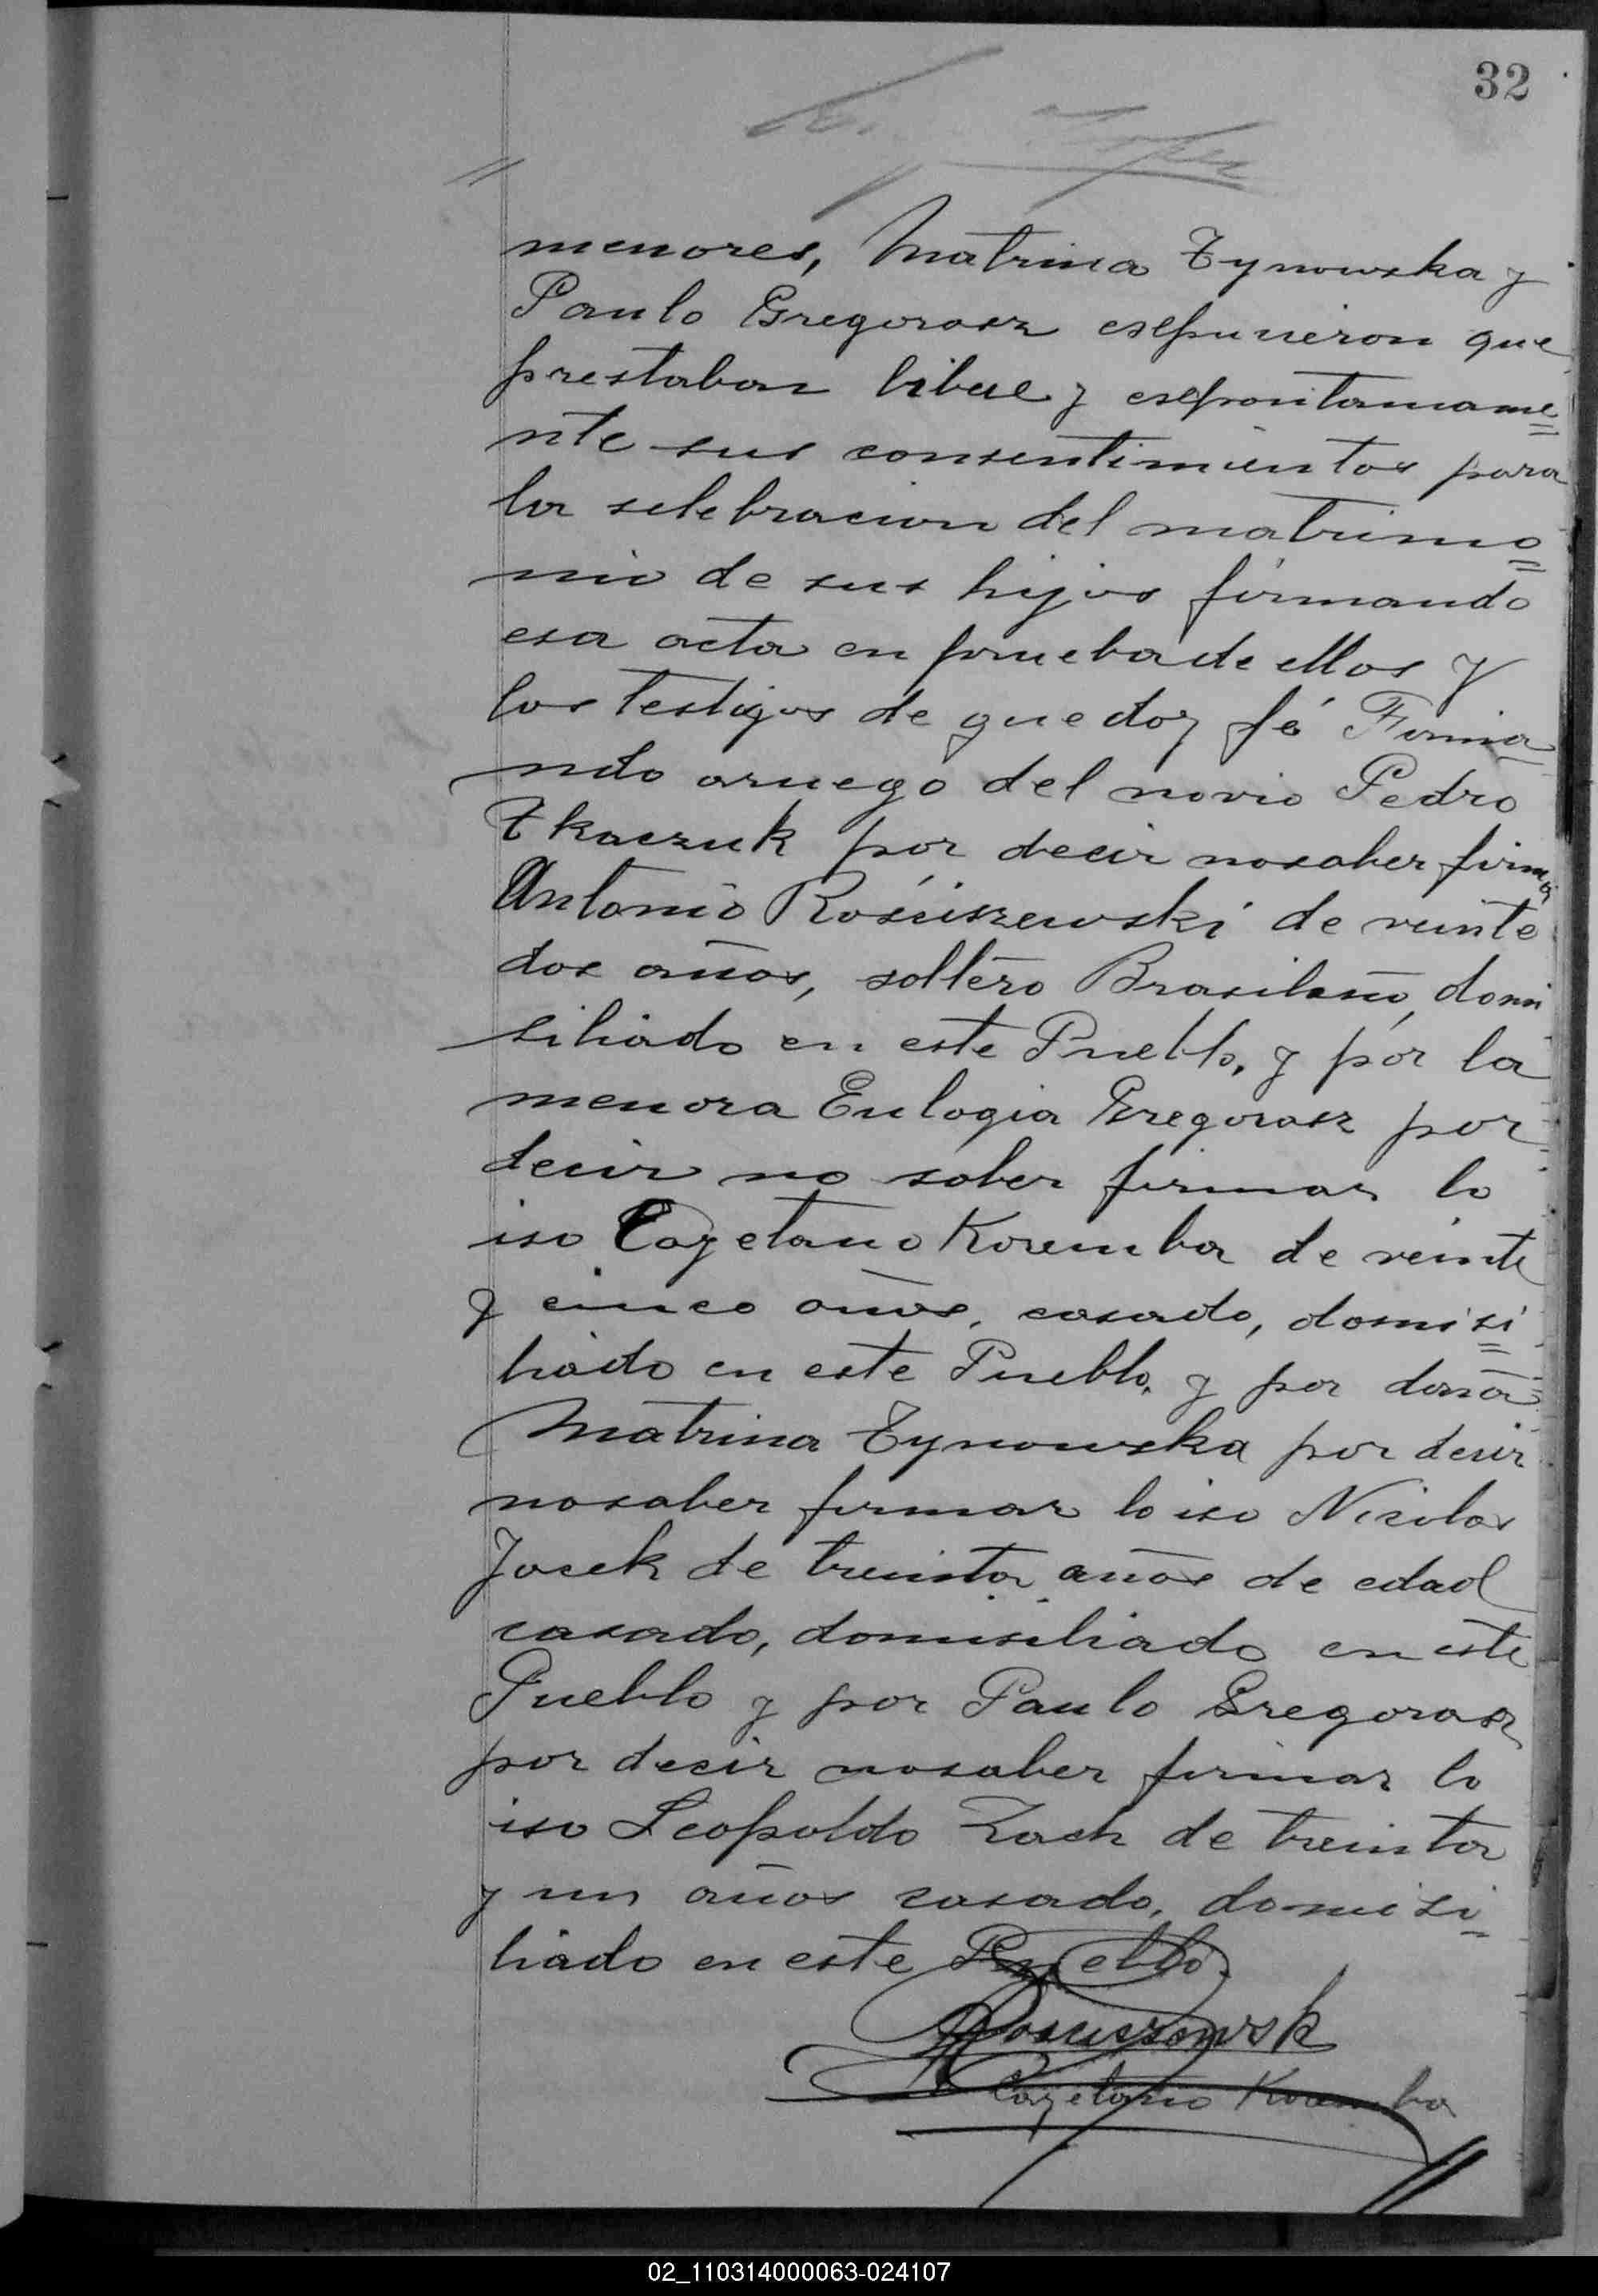 32
menores, Matrina Tynowska y
Paulo Gregorasz espusieron que
prestaban libre y espontaname
nte sus consentimientos para
la selebracion del matrimo
nio de sus hijos firmando
esa acta en prueba de ellos y
los testigos de que doy fé Firma
ndo aruego del novio Pedro
Tkaczuk por decir nosaber firmar
Antonio Rościszewski de veinte
dos años, soltero Brasileño, domi
siliado en este Pueblo, y por la
menora Eulogia Gregorasz por
decir no saber firmar lo
iso Cayetano Koremba de veinte
y cinco años, casado, domisi
liado en este Pueblo, y por doña
Matrina Tynowska por decir
nosaber firmar lo iso Nicolas
Jasek de treinta años de edad
casado, domisiliado en este
Pueblo y por Paulo Gregorasz
por decir nosaber firmar lo
iso Leopoldo Zach de treinta
y un años casado, domisi
liado en este Pueblo.
Rosciszewsk
Cayetano Koremba
02_110314000063-024107